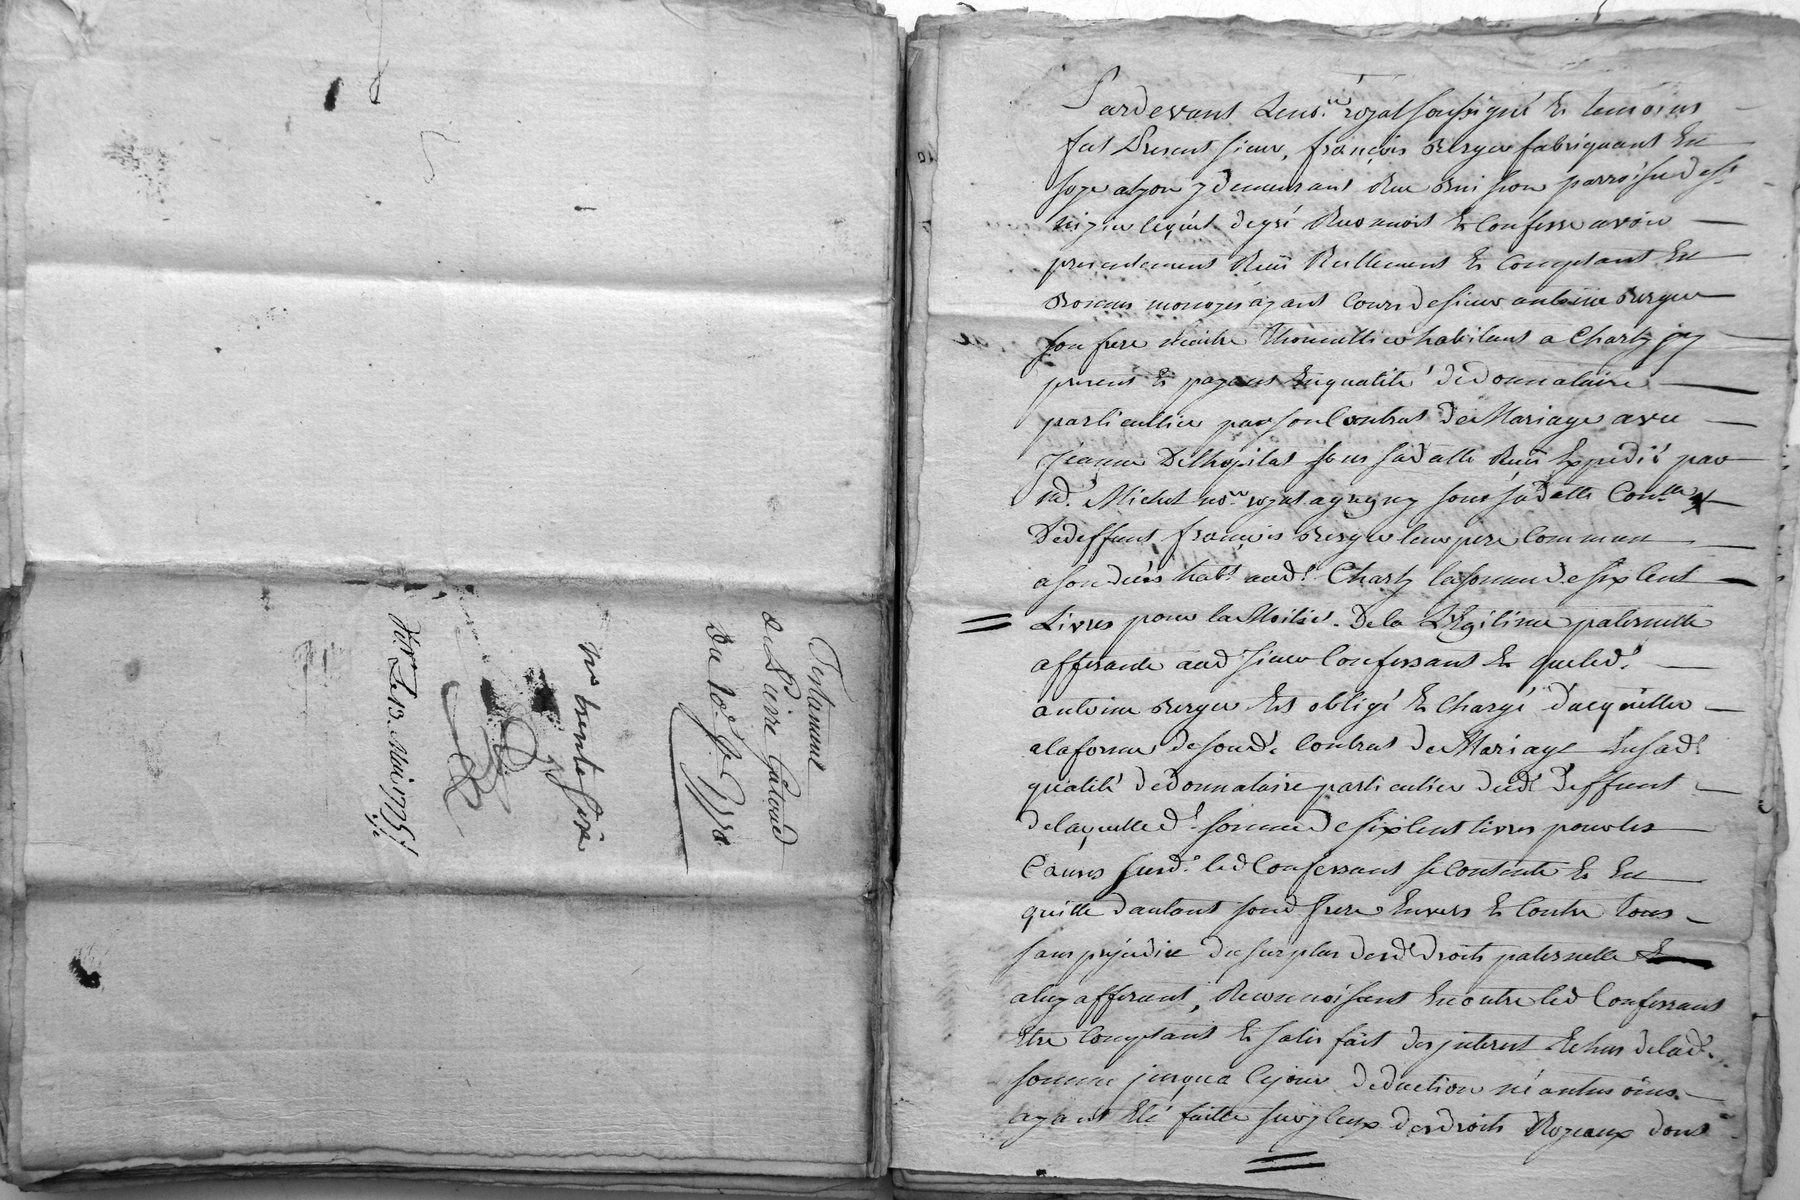 Testament
de Pierre Gataud
Du 10e
no trente sixe
Du 13 Mai 1775
Pardevant Le no.re royal soussigné Et temoins
fut Present sieur, françois Berger fabriquant En
soye a Lyon y demeurant Rue parroisse de st
nizier lequel de gré Reconnoit Et Confesse avoir
presentement Reeu Reellement Et Comptant En
Bonnes monoyes ayant Cours de sieur antoine Berger
son frere habitant a Charly icy
present Et payant En qualité de donnataire
particullier par son Contrat de Mariage avec
Jeanne Delhopital sous sa datte Reeu Expedié par
me. Michel no.re royal sous sa datte Con.llé
De deffunt françois Berger leur pere Commun
a son deces hab.t aud.t Charly la somme de six Cent
Livres pour la Moitié De la Legitime paternelle
afferante aud sieur Confessant Et que led.t
antoine Berger Est obligé Et Chargé d'acquitter
a la forme de sond.t Contrat de Mariage En sad.e
qualité de donnataire particulier dud.t deffunt
de laquelle d.e somme de six Cent livres pour les
Causes susd.e led Confessant se Contente Et En
quitte d'autant sond frere Envers Et Contre tous
sans prejudice du surplus desd.t droits paternelle
a luy afferant, Reconnoissant En outre led Confessant
Etre Comptant Et satisfait des interest Echus de lad.e
somme jusqua Ce jour deduction né antmoins
ayant Eté faitte sur yceux des droits Royaux dont